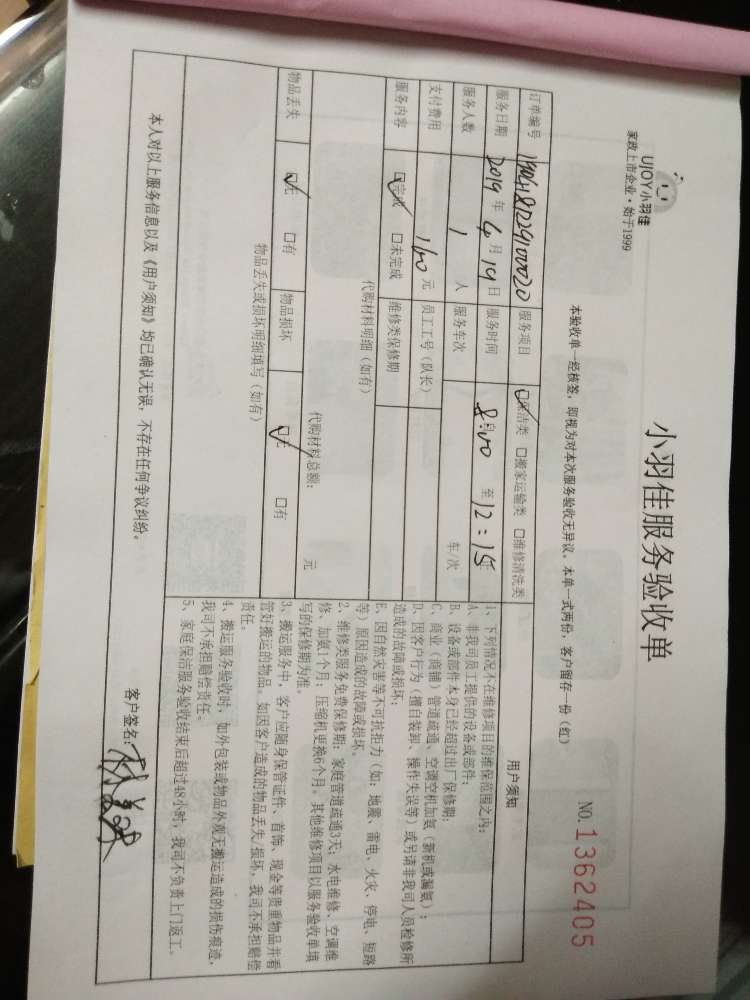 UJOY小羽佳
家政上市企业·始于1999
小羽佳服务验收单
NO.1362405
本验收单一经核签，即视为对本次服务验收无异议。本单一式两份，客户留存一份（红）
订单编号 服务项目 ☑保洁类 □搬家运输类 □维修清洗类
服务日期 2019年6月19日 服务时间 8:00 至 12:15
服务人数 1 人 服务车次 车/次
支付费用 160 元 员工工号（队长）
服务内容 ☑完成 □未完成 维修类保修期
代购材料明细（如有）
代购材料总额： 元
物品丢失 ☑无 □有 物品损坏 ☑无 □有
物品丢失或损坏明细填写（如有）
用户须知
1、下列情况不在维修项目的维保范围之内：
A、非我司员工提供的设备或部件；
B、设备或部件本身已经超过出厂保修期；
C、商业（商铺）管道疏通、空调空机加氨（新机或漏氨）；
D、因客户行为（擅自装卸、操作失误等）或另请非我司人员检修所
造成的故障或损坏；
E、因自然灾害等不可抗拒力（如：地震、雷电、火灾、停电、短路
等）原因造成的故障或损坏。
2、维修类服务免费保修期：家庭管道疏通3天；水电维修、空调维
修、加氨1个月；压缩机更换6个月。其他维修项目以服务验收单填
写的保修期为准。
3、搬运服务中，客户应随身保管证件、首饰、现金等贵重物品并看
管好搬运的物品。如因客户造成的物品丢失/损坏，我司不承担赔偿
责任。
4、搬运服务验收时，如外包装或物品外观无搬运造成的损伤痕迹，
我司不承担赔偿责任。
5、家庭保洁服务验收结束后超过48小时，我司不负责上门返工。
本人对以上服务信息以及《用户须知》均已确认无误，不存在任何争议纠纷。
客户签名：